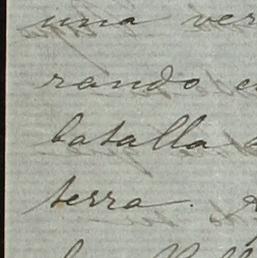 una ver
rando e
batalla
terra.